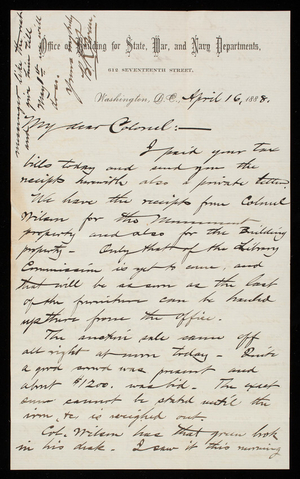 Office of Building for State, War, and Navy Departments,
612 SEVENTEENTH STREET,
Washington, D.C., April 16, 1888.
My dear Colonel:—
I paid your tax
bills today and send you the
receipts herewith also a private letter.
We have the receipts from Colonel
Wilson for the Monument
property and also for the Building
property — Only that of the Library
Commission is yet to come, and
that will be as soon as the last
of the furniture can be hauled
up there from the office.
The auction sale came off
all right at noon today — Quite
a good crowd was present and
about $1200. was bid. The exact
sum cannot be stated until the
iron, &c. is weighed out.
Col. Wilson has that green book
in his desk. I saw it this morning
messenger like
and I give him till
May 1st
Yours truly